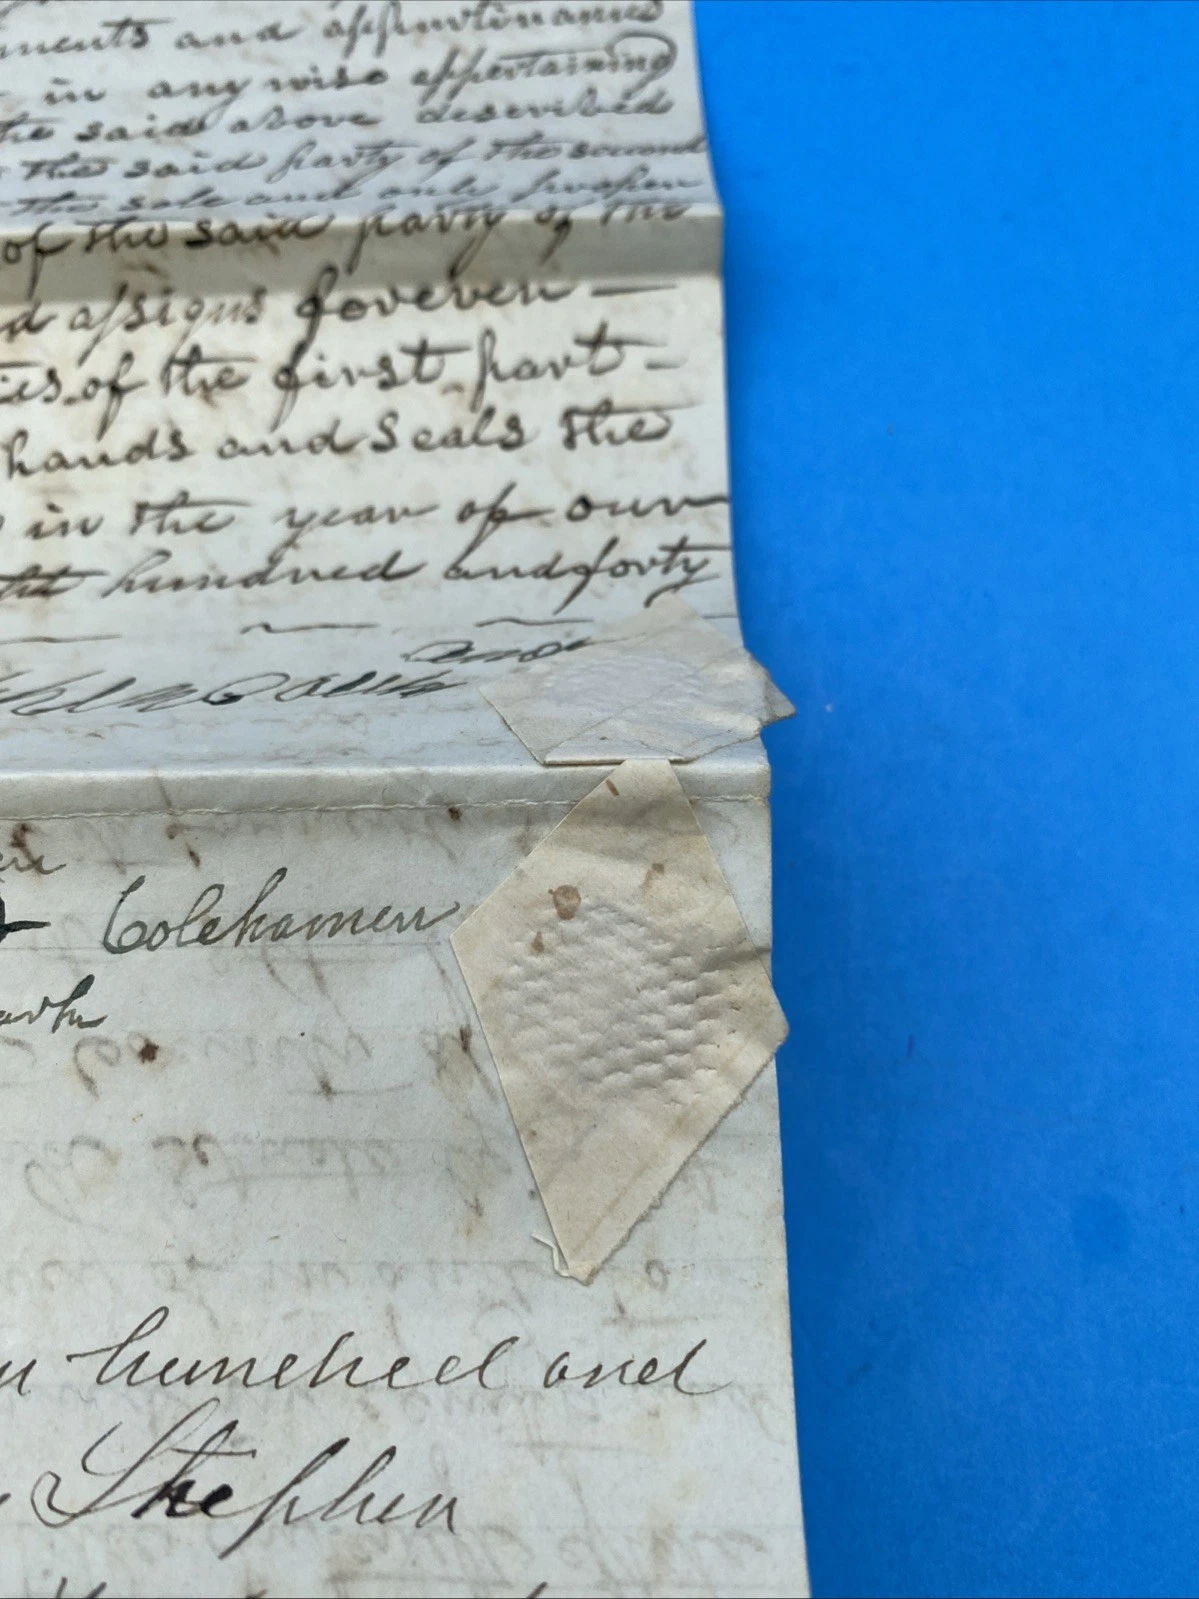 ments and appurtinances
in any wise appertaining
the said above described
the said party of the second
the sole and only proper
of the said party of the
d assigns foreven —
ies of the first part –
hands and Seals the
in the year of our
hundred and forty
and
Colehamen
n hundred and
Stephen